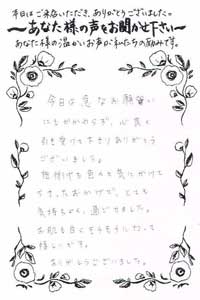 本日はご来店いただき、ありがとうございました。
～あなた様の声をお聞かせ下さい～
あなた様の温かいお声が私たちの励みです。
今日は急なお願い
にもかかわらず、心良く
引き受けて下さりありがとう
ございました。
色々と気にかけて
下さったおかげで、とても
気持ちよく過ごせました。
お肌も白くモチモチになって
嬉しいです。
ありがとうございました。